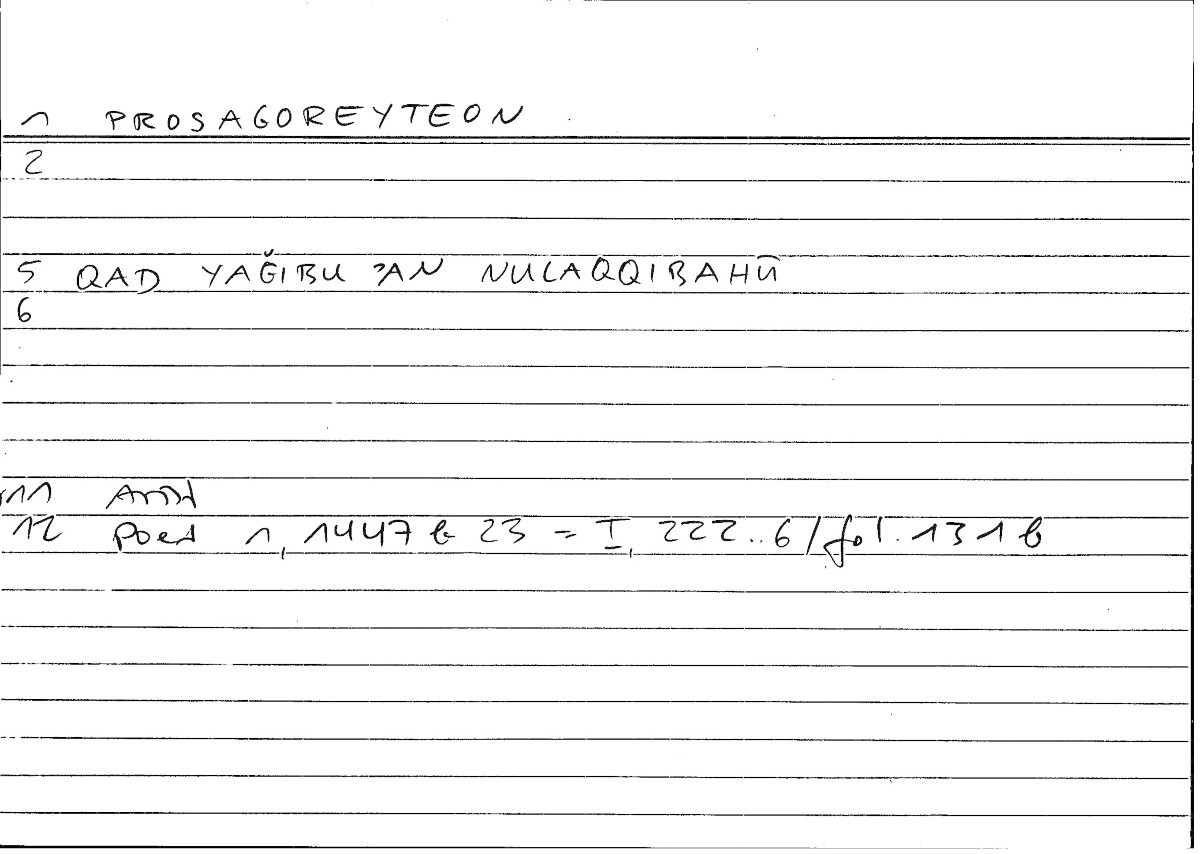 1 PROSAGOREYTEON
2
5 QAD YAǦIBU ʾAN NULAQQIBAHŪ
6
11 Arist
12 Poet 1, 1447 b 23 = I, 222..6/fol. 131 b